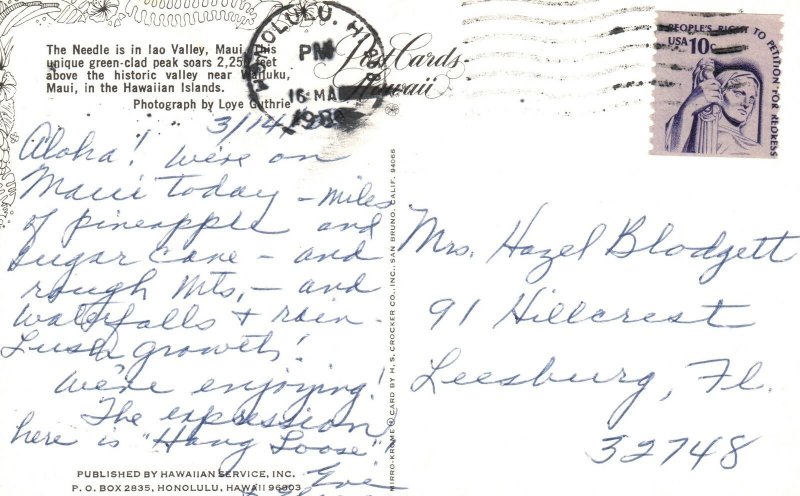 The Needle is in Iao Valley, Maui. This
unique green-clad peak soars 2,25 feet
above the historic valley near Wailuku,
Maui, in the Hawaiian Islands.
Photograph by Loye Guthrie
Post Cards
Hawaii
HONOLULU, HI
PM
16 MAR
1980
PEOPLE'S RIGHT TO PETITION FOR REDRESS
USA 10c
3/14
Aloha! We're on
Maui today – miles
of pineapple and
sugar cane – and
rough Mts, – and
waterfalls + rain –
Lush growth!
We're enjoying!
The expression
here is "Hang Loose"
Mrs. Hazel Blodgett
91 Hillcrest
Leesburg, Fl.
32748
MIRRO-KROME® CARD BY H. S. CROCKER CO., INC., SAN BRUNO, CALIF. 94066
PUBLISHED BY HAWAIIAN SERVICE, INC.
P. O. BOX 2835, HONOLULU, HAWAII 96803